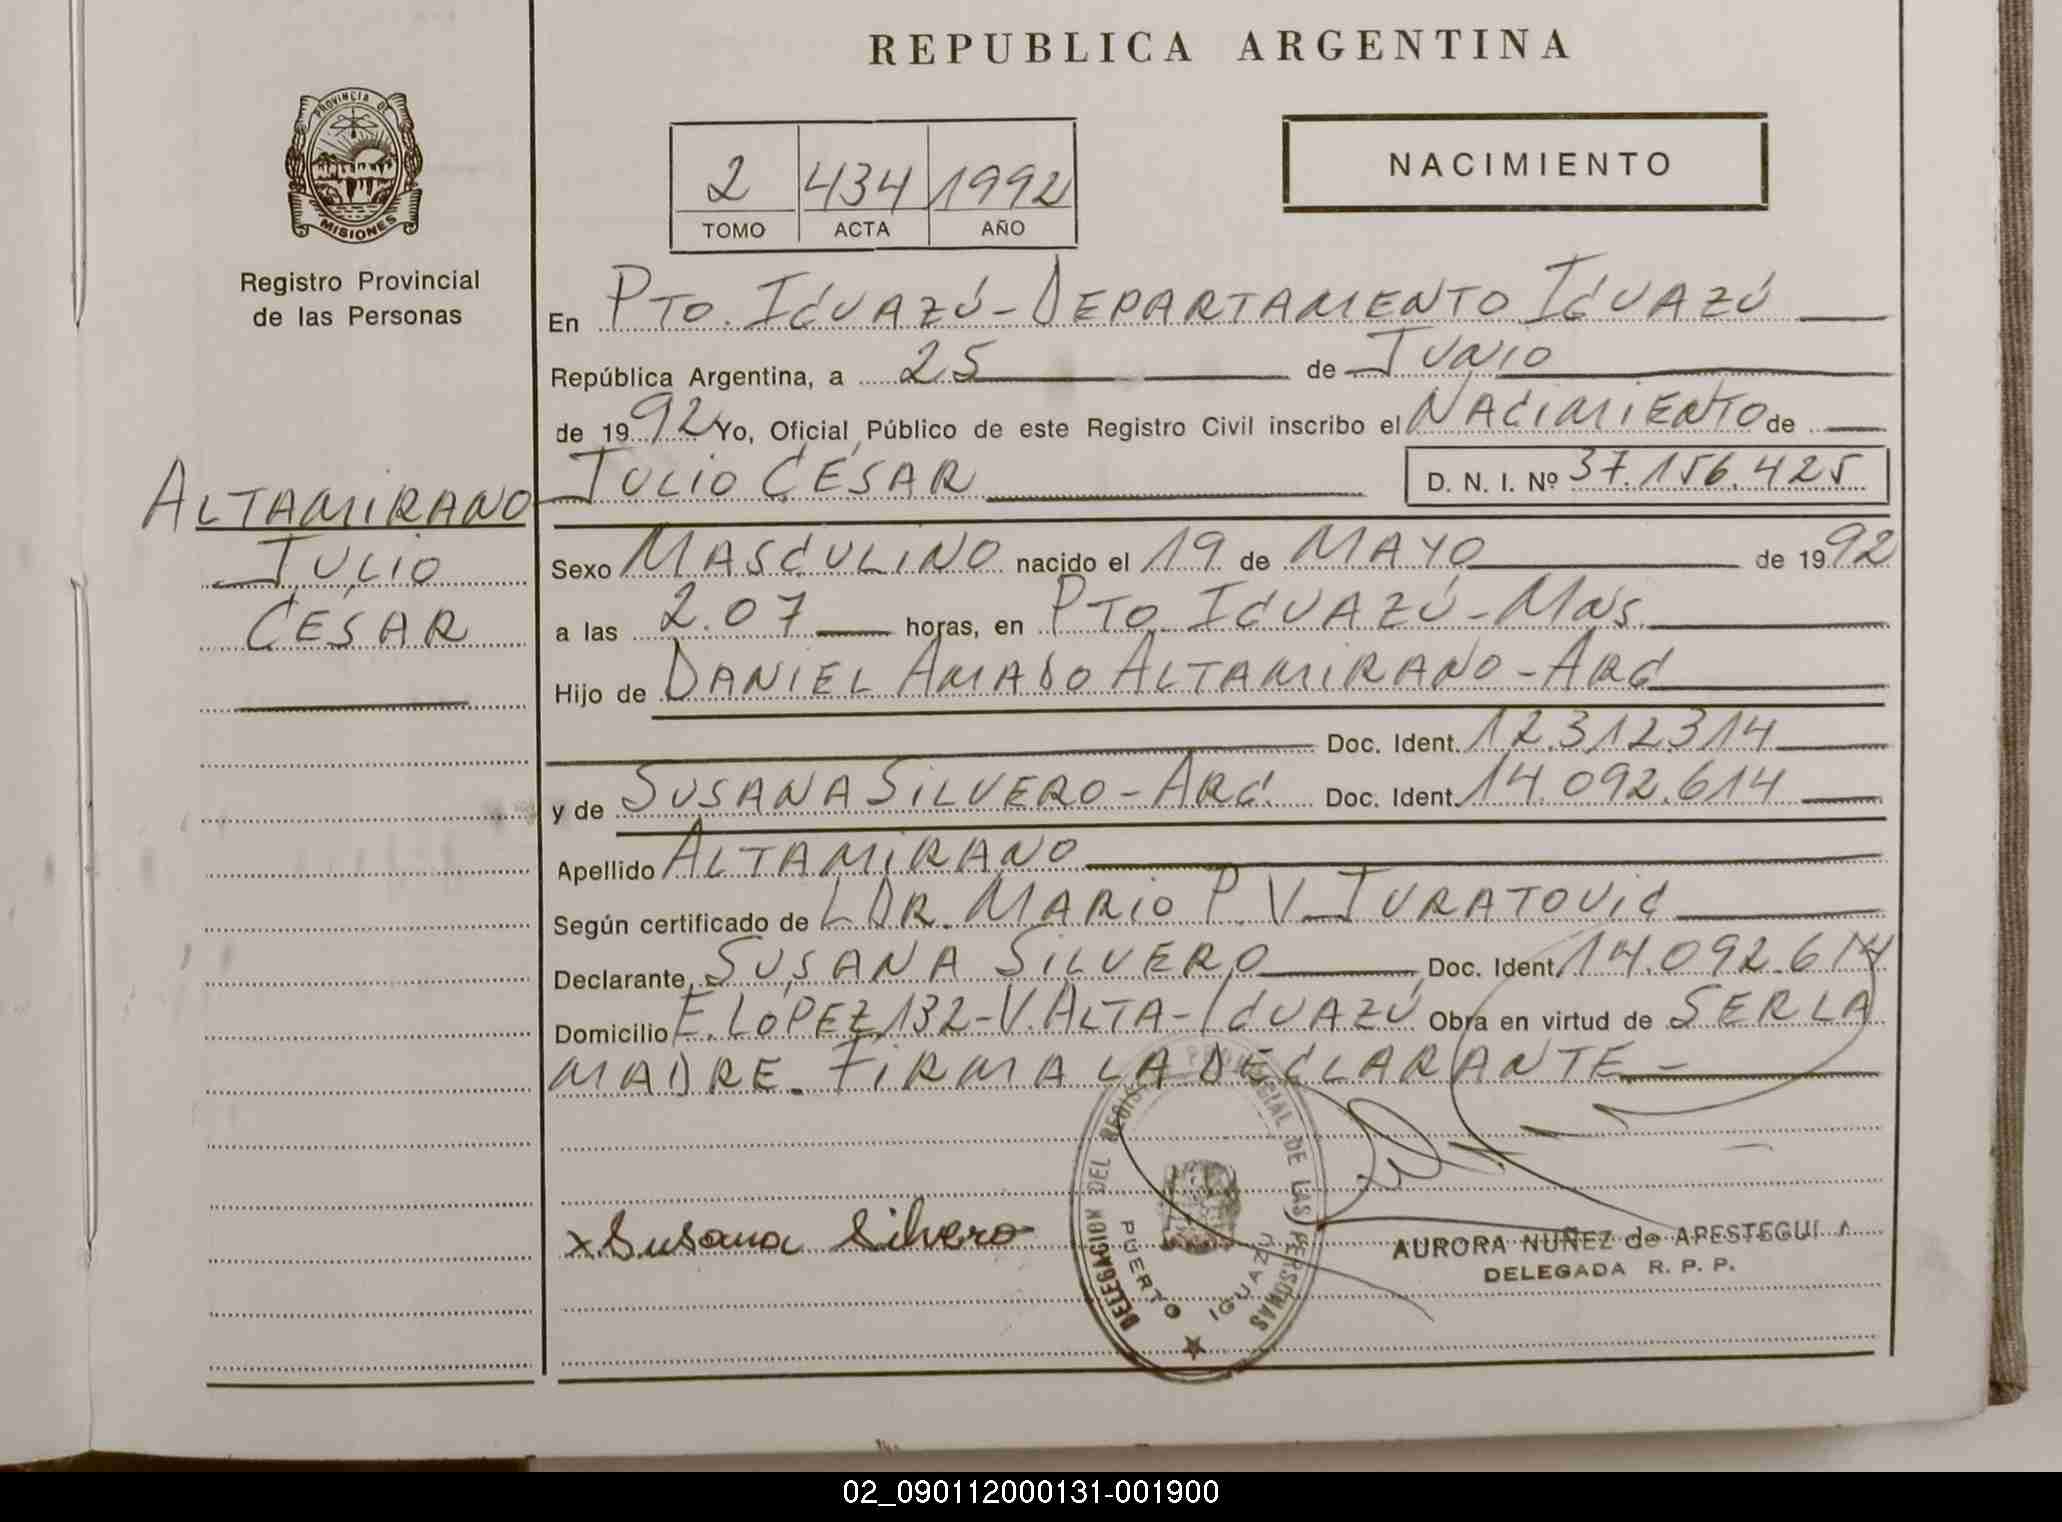 REPUBLICA ARGENTINA
PROVINCIA DE
MISIONES
Registro Provincial
de las Personas
2 434 1992
TOMO ACTA AÑO
NACIMIENTO
En PTO. IGUAZÚ - DEPARTAMENTO IGUAZÚ
República Argentina, a 25 de JUNIO
de 1992 Yo, Oficial Público de este Registro Civil inscribo el NACIMIENTO de
JULIO CESAR D. N. I. Nº 37.156.425
ALTAMIRANO
JULIO
CESAR
Sexo MASCULINO nacido el 19 de MAYO de 1992
a las 2.07 horas, en PTO. IGUAZÚ - MNS.
Hijo de DANIEL AMADO ALTAMIRANO - ARG
Doc. Ident. 12.312.314
y de SUSANA SILVERO - ARG. Doc. Ident. 14.092.614
Apellido ALTAMIRANO
Según certificado de DR. MARIO P. V. JURATOVIC
Declarante SUSANA SILVERO Doc. Ident. 14.092.614
Domicilio E. LÓPEZ 132 - V. ALTA - IGUAZÚ Obra en virtud de SER LA
MADRE. FIRMA LA DECLARANTE -
x Susana Silvero
DELEGACION DEL REGISTRO PROVINCIAL DE LAS PERSONAS
PUERTO IGUAZU
AURORA NUÑEZ de APESTEGUIA
DELEGADA R. P. P.
02_090112000131-001900